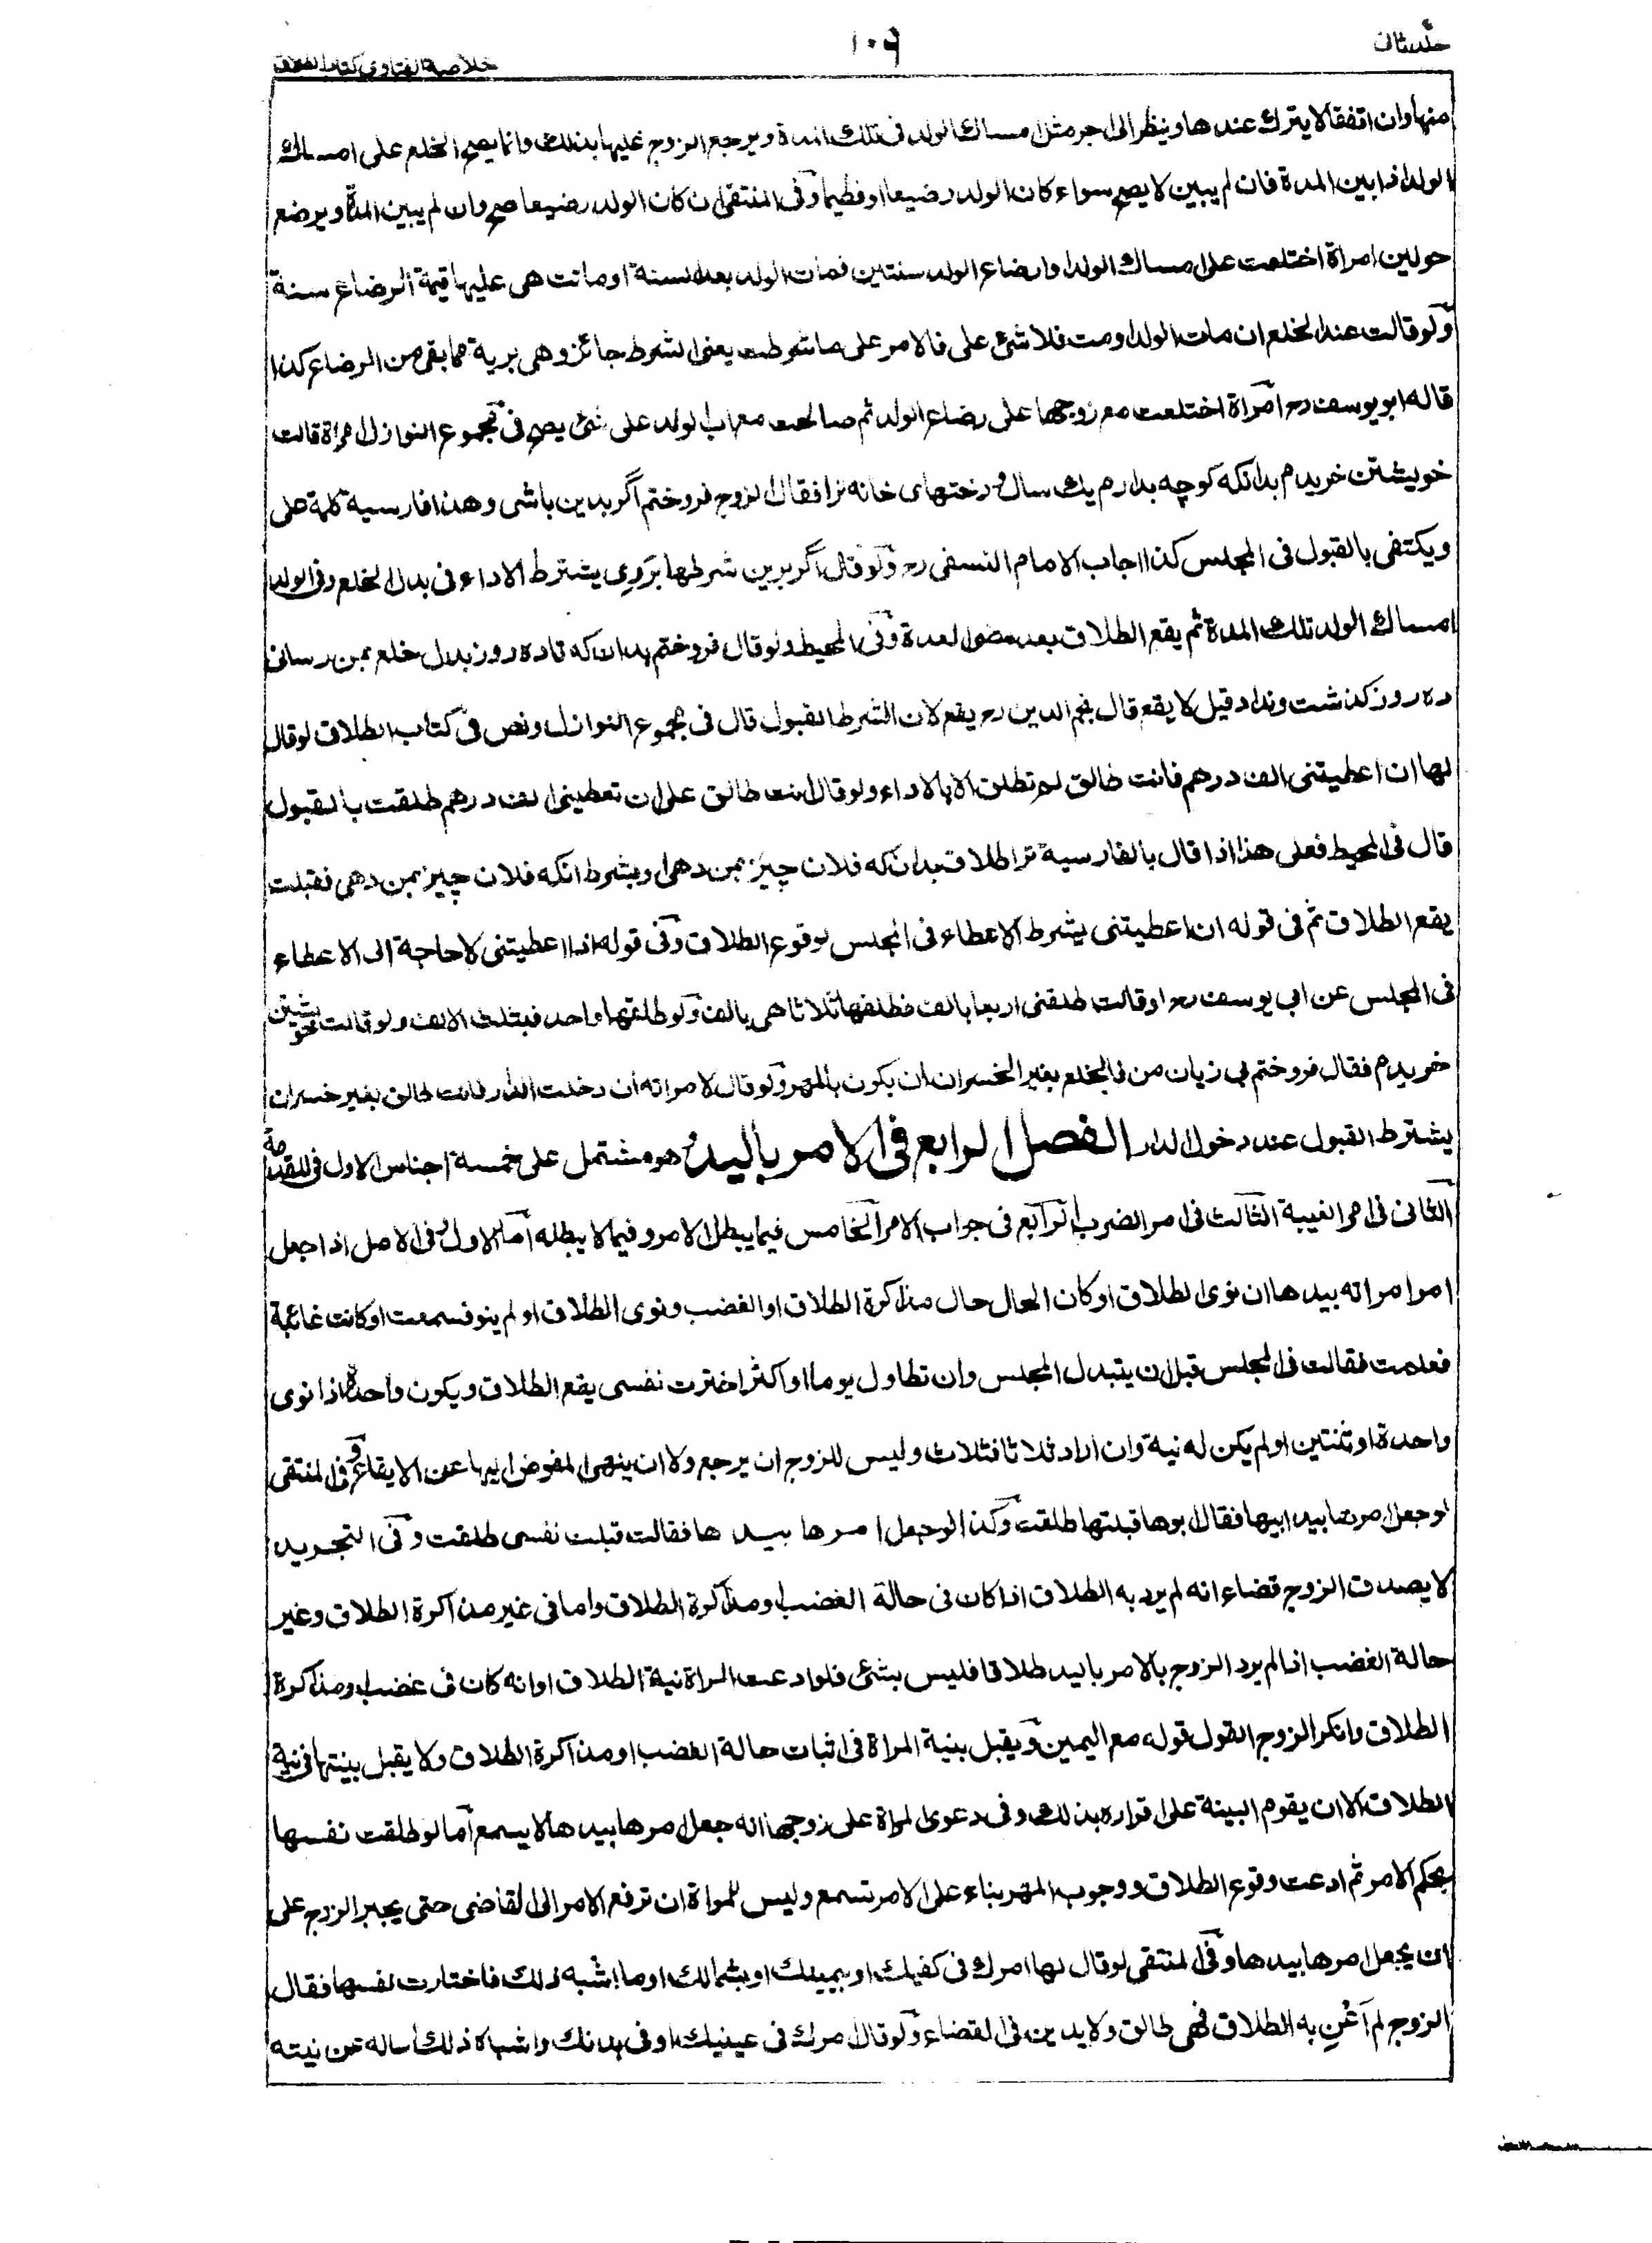 جلد ثانی
۱۰۶
خلاصة الفتاوی کتاب الطلاق
منها وان اتفقا لا یترك عندها وینظر الی اجر مثل امساك الولد فی تلك المدة ویرجع الزوج علیها بذلك وانما یصح الخلع علی امساك
الولد اذا بین المدة فان لم یبین لا یصح سواء کان الولد رضیعا او فطیما وفی المنتقی ان کان الولد رضیعا صح وان لم یبین المدة ویرضع
حولین امراة اختلعت علی امساك الولد او ارضاع الولد سنتین فمات الولد بعد سنة او ماتت هی علیها قیمة الرضاع سنة
ولو قالت عند الخلع ان مات الولد او مت فلا شئ علی فالامر علی ما شرطت یعنی الشرط جائز وهی بریة مما بقی من الرضاع کذا
قاله ابو یوسف رح امراة اختلعت مع زوجها علی رضاع الولد ثم صالحت مع اب الولد علی شئ یصح فی مجموع النوازل امراة قالت
خویشتن خریدم بدانکه کوچه بدارم یك سال و رختهای خانه ترا فقال الزوج فروختم اگر بدین باشی وهذا فارسیة کلمة علی
ویکتفی بالقبول فی المجلس کذا اجاب الامام النسفی رح ولو قال اگر برین شرطها بروی یشترط الاداء فی بدل الخلع وفی الولد
امساك الولد تلك المدة ثم یقع الطلاق بعد مضی العدة وفی المحیط ولو قال فروختم بدانکه تا ده روز بدل خلع بمن رسانی
ده روز کذشت ونداد قیل لا یقع قال نجم الدین رح یقع لان الشرط القبول قال فی مجموع النوازل ونص فی کتاب الطلاق لو قال
لها ان اعطیتنی الف درهم فانت طالق لم تطلق الا بالاداء ولو قال انت طالق علی ان تعطینی الف درهم طلقت بالقبول
قال فی المحیط فعلی هذا اذا قال بالفارسیة ترا طلاق بدانکه فلان چیز بمن دهی او بشرط انکه فلان چیز بمن دهی فقبلت
یقع الطلاق ثم فی قوله ان اعطیتنی یشرط الاعطاء فی المجلس لوقوع الطلاق وفی قوله اذا اعطیتنی لا حاجة الی الاعطاء
فی المجلس عن ابی یوسف رح او قالت طلقنی اربعا بالف فطلقها ثلاثا هی بالف ولو طلقها واحد فبثلث الالف ولو قالت خویشتن
خریدم فقال فروختم بی زیان من فالخلع بغیر الخسران ان یکون بالمهر ولو قال لامراته ان دخلت الدار فانت طالق بغیر خسران
یشترط القبول عند دخول الدار الفصل الرابع فی الامر بالید هو مشتمل علی خمسة اجناس الاول فی المقدمة
الثانی فی امر الغیبة الثالث فی امر الضرب الرابع فی جواب الامر الخامس فیما یبطل الامر وفیما لا یبطله اما الاول فی الاصل اذا جعل
امر امراته بیدها ان نوی الطلاق او کان الحال حال مذاکرة الطلاق او الغضب ونوی الطلاق او لم ینو فسمعت او کانت غائبة
فعلمت فقالت فی المجلس قبل ان یتبدل المجلس وان تطاول یوما او اکثر اخترت نفسی یقع الطلاق ویکون واحدة اذا نوی
واحدة او ثنتین او لم یکن له نیة وان اراد ثلاثا فثلاث ولیس للزوج ان یرجع ولا ان ینهی المفوض الیها عن الایقاع وفی المنتقی
لو جعل امرها بید ابیها فقال ابوها قبلتها طلقت وکذا لو جعل امرها بیدها فقالت قبلت نفسی طلقت وفی التجرید
لا یصدق الزوج قضاء انه لم یرد به الطلاق اذا کان فی حالة الغضب او مذاکرة الطلاق واما فی غیر مذاکرة الطلاق وغیر
حالة الغضب اذا لم یرد الزوج بالامر بالید طلاقا فلیس بشئ فلو ادعت المراة نیة الطلاق او انه کان فی غضب او مذاکرة
الطلاق وانکر الزوج القول قوله مع الیمین ویقبل بینة المراة فی اثبات حالة الغضب او مذاکرة الطلاق ولا یقبل بینتها فی نیة
الطلاق الا ان یقوم البینة علی اقراره بذلك وفی دعوی المراة علی زوجها انه جعل امرها بیدها لا یسمع اما لو طلقت نفسها
بحکم الامر ثم ادعت وقوع الطلاق ووجوب المهر بناء علی الامر تسمع ولیس للمراة ان ترفع الامر الی القاضی حتی یجبر الزوج علی
ان یجعل امرها بیدها وفی المنتقی لو قال لها امرك فی کفیك او بیمینك او بشمالك او ما اشبه ذلك فاختارت نفسها فقال
الزوج لم اَعْنِ به الطلاق فهی طالق ولا یدین فی القضاء ولو قال امرك فی عینیك او فی بدنك واشباه ذلك اساله عن نیته